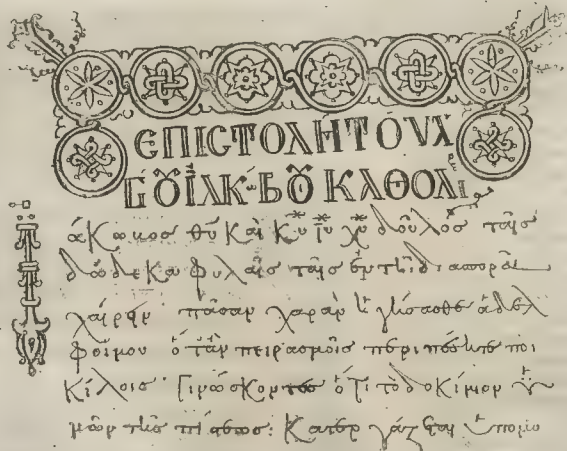 ΕΠΙCΤΟΛΗ ΤΟΥ
ΚΑΘΟΛΙ
Ἰάκωβος θῡ καὶ κῡ ῑῡ χῡ δοῦλος ταῖς
δώδεκα φυλαῖς ταῖς ἐν τῆι διασπορᾶι
χαίρειν πᾶσαν χαρὰν ἡγήσασθε ἀδελ
φοί μου ὅταν πειρασμοῖς περιπέσητε ποι
κίλοις Γινώσκοντες ὅτι τὸ δοκίμιον ὑ
μῶν τῆς πίστεως: Κατεργάζεται ὑπομο